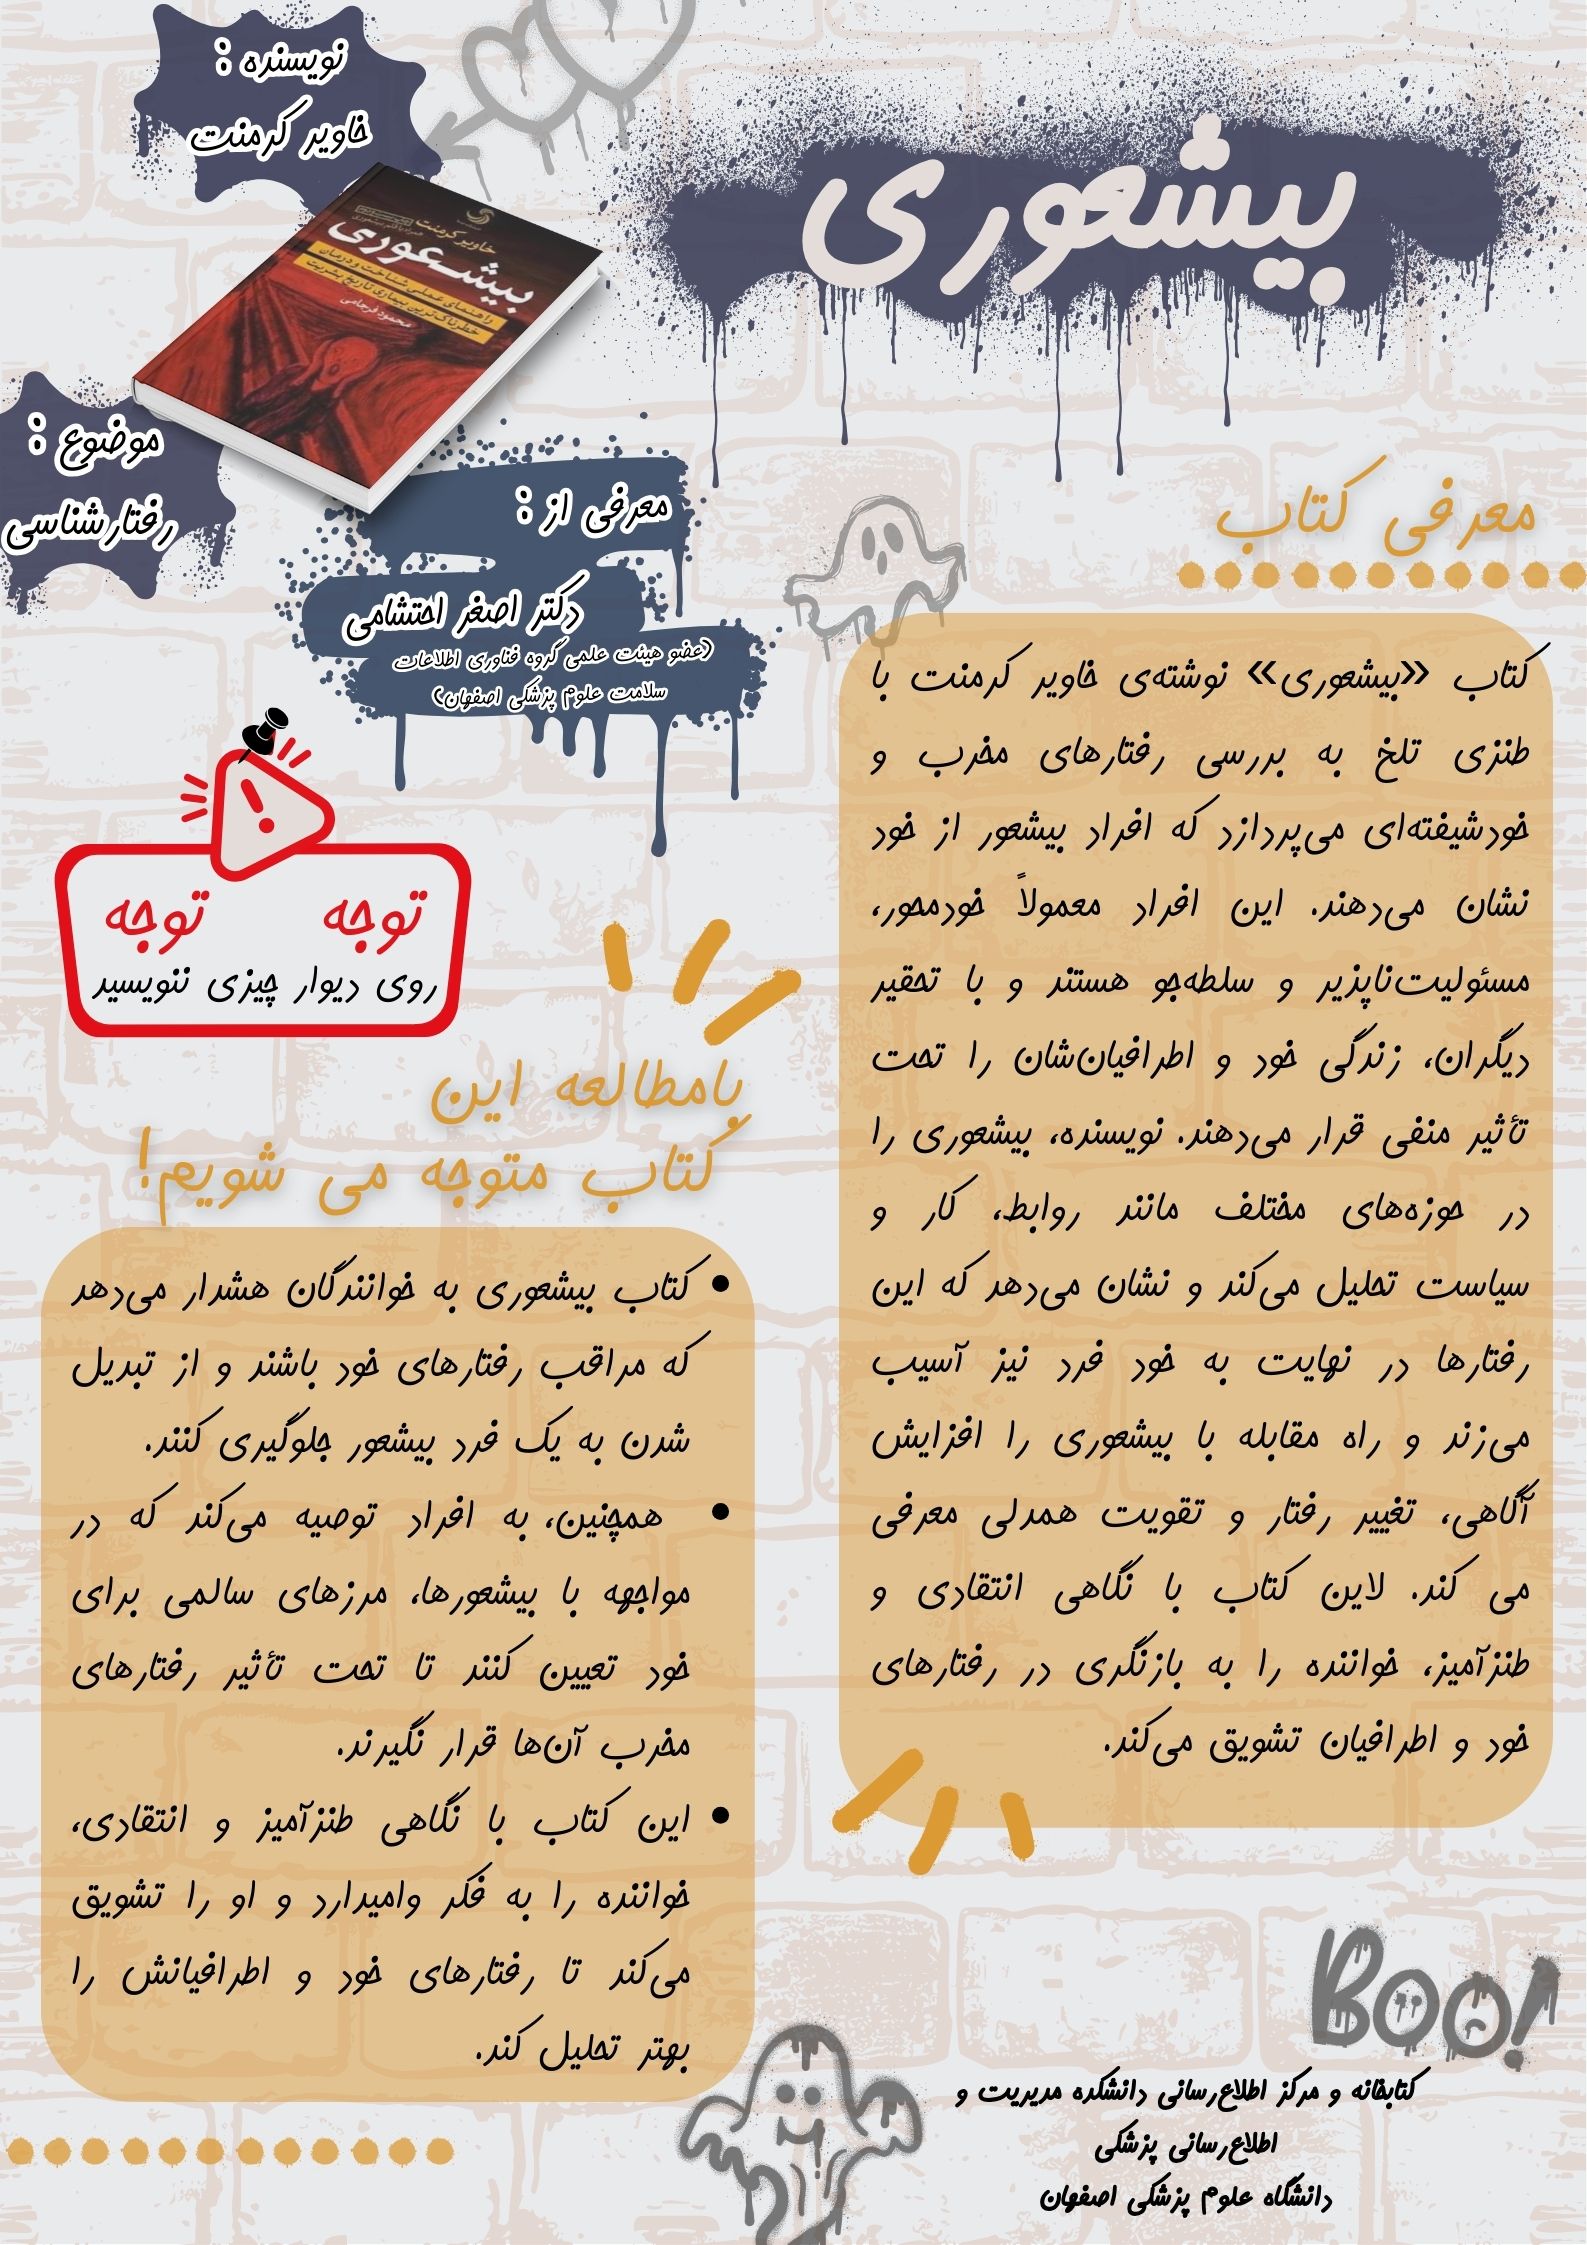 بیشعوری
نویسنده :
خاویر کرمنت
خاویر کرمنت
بیشعوری
راهنمای عملی شناخت و درمان
خطرناک‌ترین بیماری تاریخ بشریت
محمود فرجامی
موضوع :
رفتارشناسی
معرفی از :
دکتر اصغر احتشامی
(عضو هیئت علمی گروه فناوری اطلاعات
سلامت علوم پزشکی اصفهان)
معرفی کتاب
کتاب «بیشعوری» نوشته‌ی خاویر کرمنت با
طنزی تلخ به بررسی رفتارهای مخرب و
خودشیفته‌ای می‌پردازد که افراد بیشعور از خود
نشان می‌دهند. این افراد معمولاً خودمحور،
مسئولیت‌ناپذیر و سلطه‌جو هستند و با تحقیر
دیگران، زندگی خود و اطرافیان‌شان را تحت
تأثیر منفی قرار می‌دهند. نویسنده، بیشعوری را
در حوزه‌های مختلف مانند روابط، کار و
سیاست تحلیل می‌کند و نشان می‌دهد که این
رفتارها در نهایت به خود فرد نیز آسیب
می‌زند و راه مقابله با بیشعوری را افزایش
آگاهی، تغییر رفتار و تقویت همدلی معرفی
می کند. لاین کتاب با نگاهی انتقادی و
طنزآمیز، خواننده را به بازنگری در رفتارهای
خود و اطرافیان تشویق می‌کند.
توجه توجه
روی دیوار چیزی ننویسید
بامطالعه این
کتاب متوجه می شویم!
• کتاب بیشعوری به خوانندگان هشدار می‌دهد
که مراقب رفتارهای خود باشند و از تبدیل
شدن به یک فرد بیشعور جلوگیری کنند.
• همچنین، به افراد توصیه می‌کند که در
مواجهه با بیشعورها، مرزهای سالمی برای
خود تعیین کنند تا تحت تأثیر رفتارهای
مخرب آن‌ها قرار نگیرند.
• این کتاب با نگاهی طنزآمیز و انتقادی،
خواننده را به فکر وامیدارد و او را تشویق
می‌کند تا رفتارهای خود و اطرافیانش را
بهتر تحلیل کند.
BOO!
کتابخانه و مرکز اطلاع‌رسانی دانشکده مدیریت و
اطلاع‌رسانی پزشکی
دانشگاه علوم پزشکی اصفهان